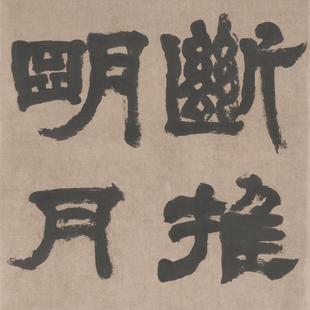 斷推
明月